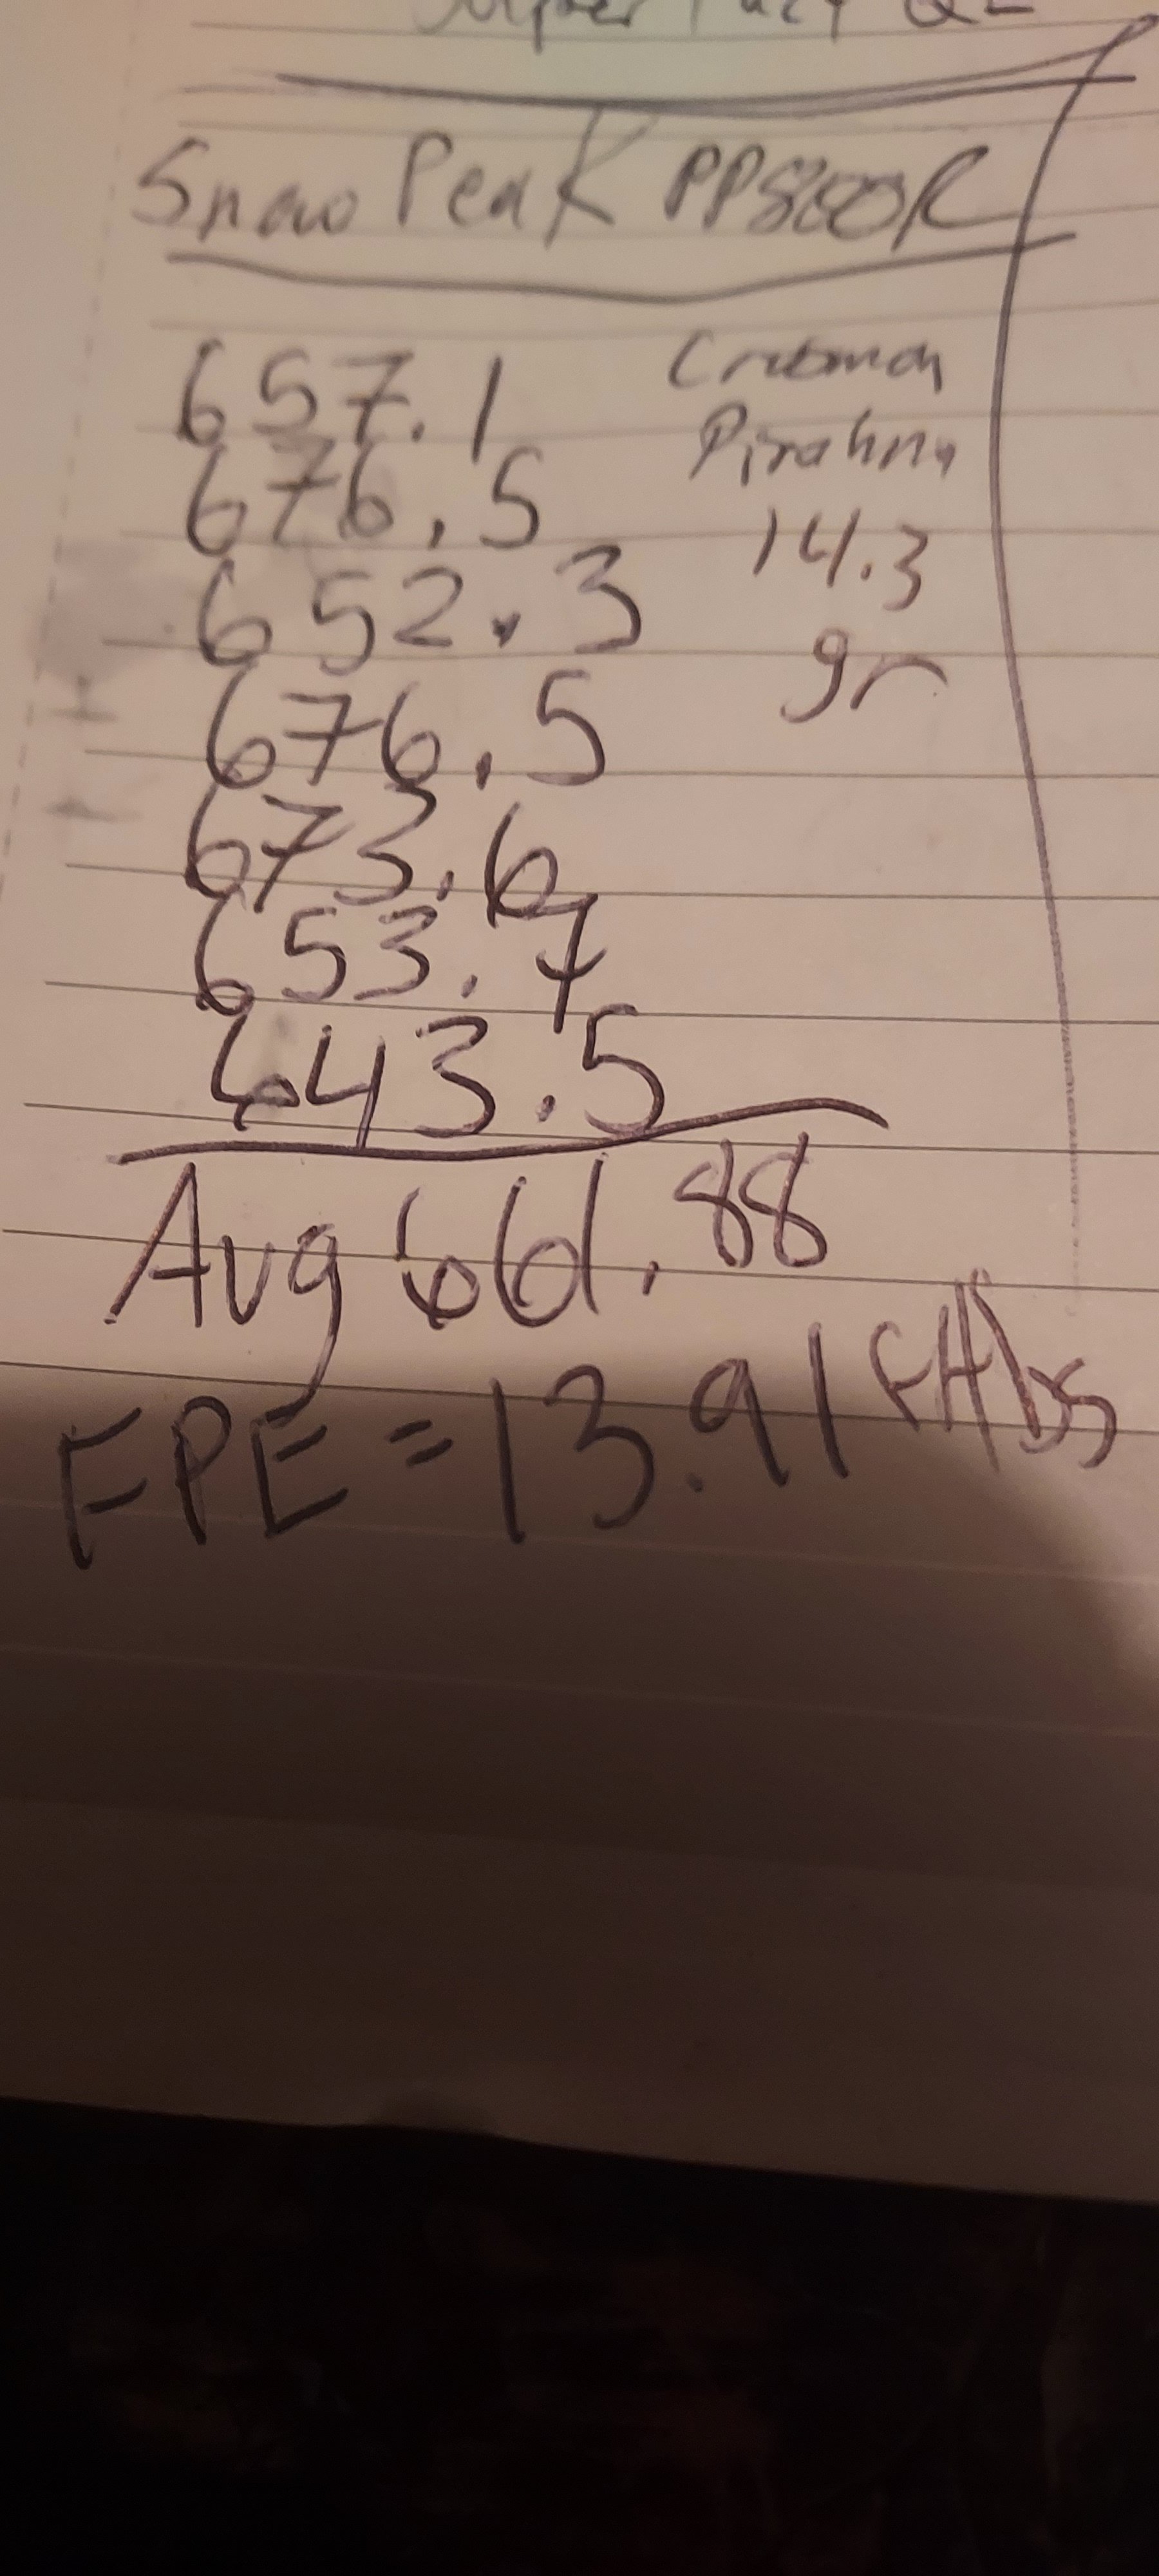 Snow Peak PP800R
657.1 Crosman
676.5 Pirahna
652.3 14.3
676.5 gr
673.6
653.7
643.5
Avg 661.88
FPE = 13.91 Ftlbs